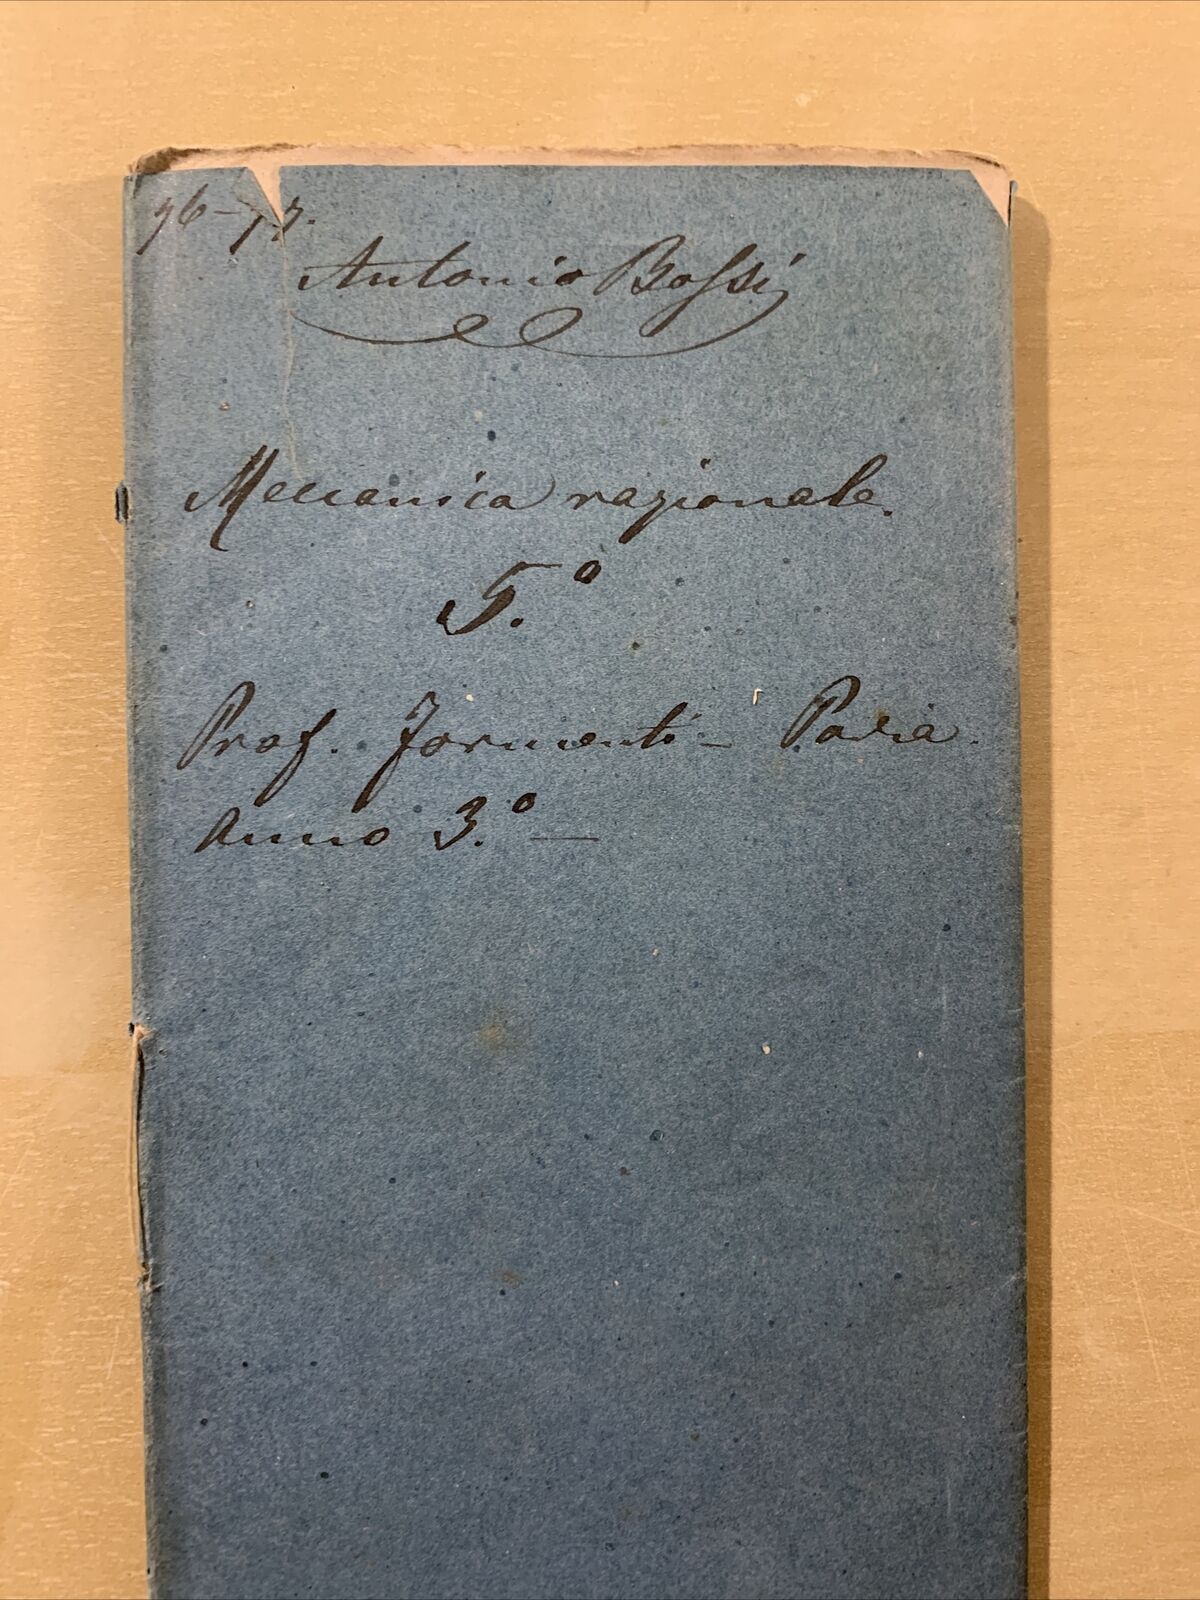 76-77.
Antonio Bossi
Meccanica razionale.
5.º
Prof. Formenti - Pavia.
Anno 3.º —